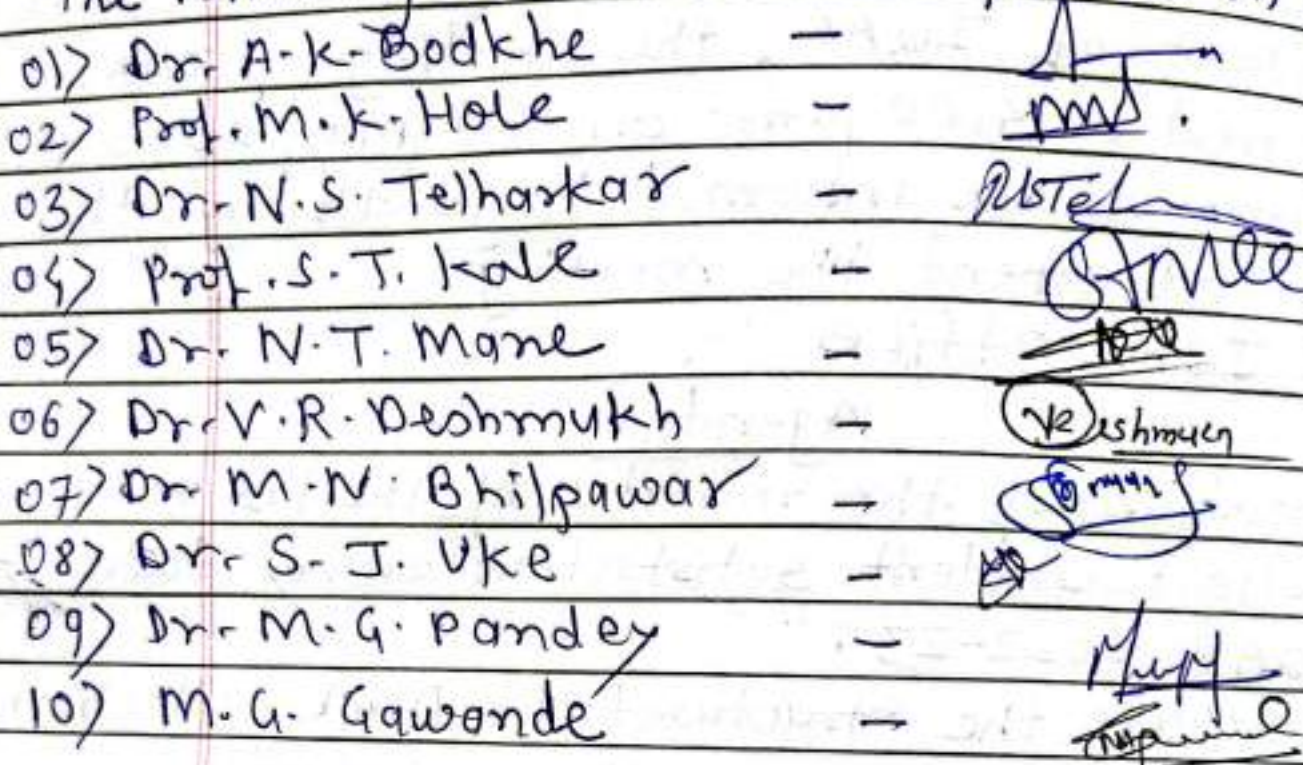 The
01> Dr. A-K-Bodkhe -
02> Prof. M.K. Hole -
03> Dr. N.S. Telharkar -
04> Prof. S.T. Kale -
05> Dr. N.T. Mane -
06> Dr. V.R. Deshmukh - VRDeshmukh
07> Dr. M.N. Bhilpawar -
08> Dr. S.J. Uke -
09> Dr. M.G. Pandey -
10> M.G. Gawonde -